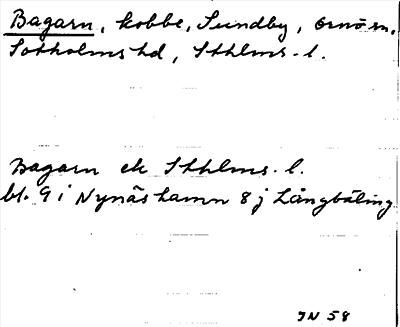 Bagarn, kobbe, Sundby, Ornö sn,
Sotholms hd, Sthlms l.
Bagarn ek Sthlms l.
bl. 9 i Nynäshamn 8 j Långbäling
IN 58